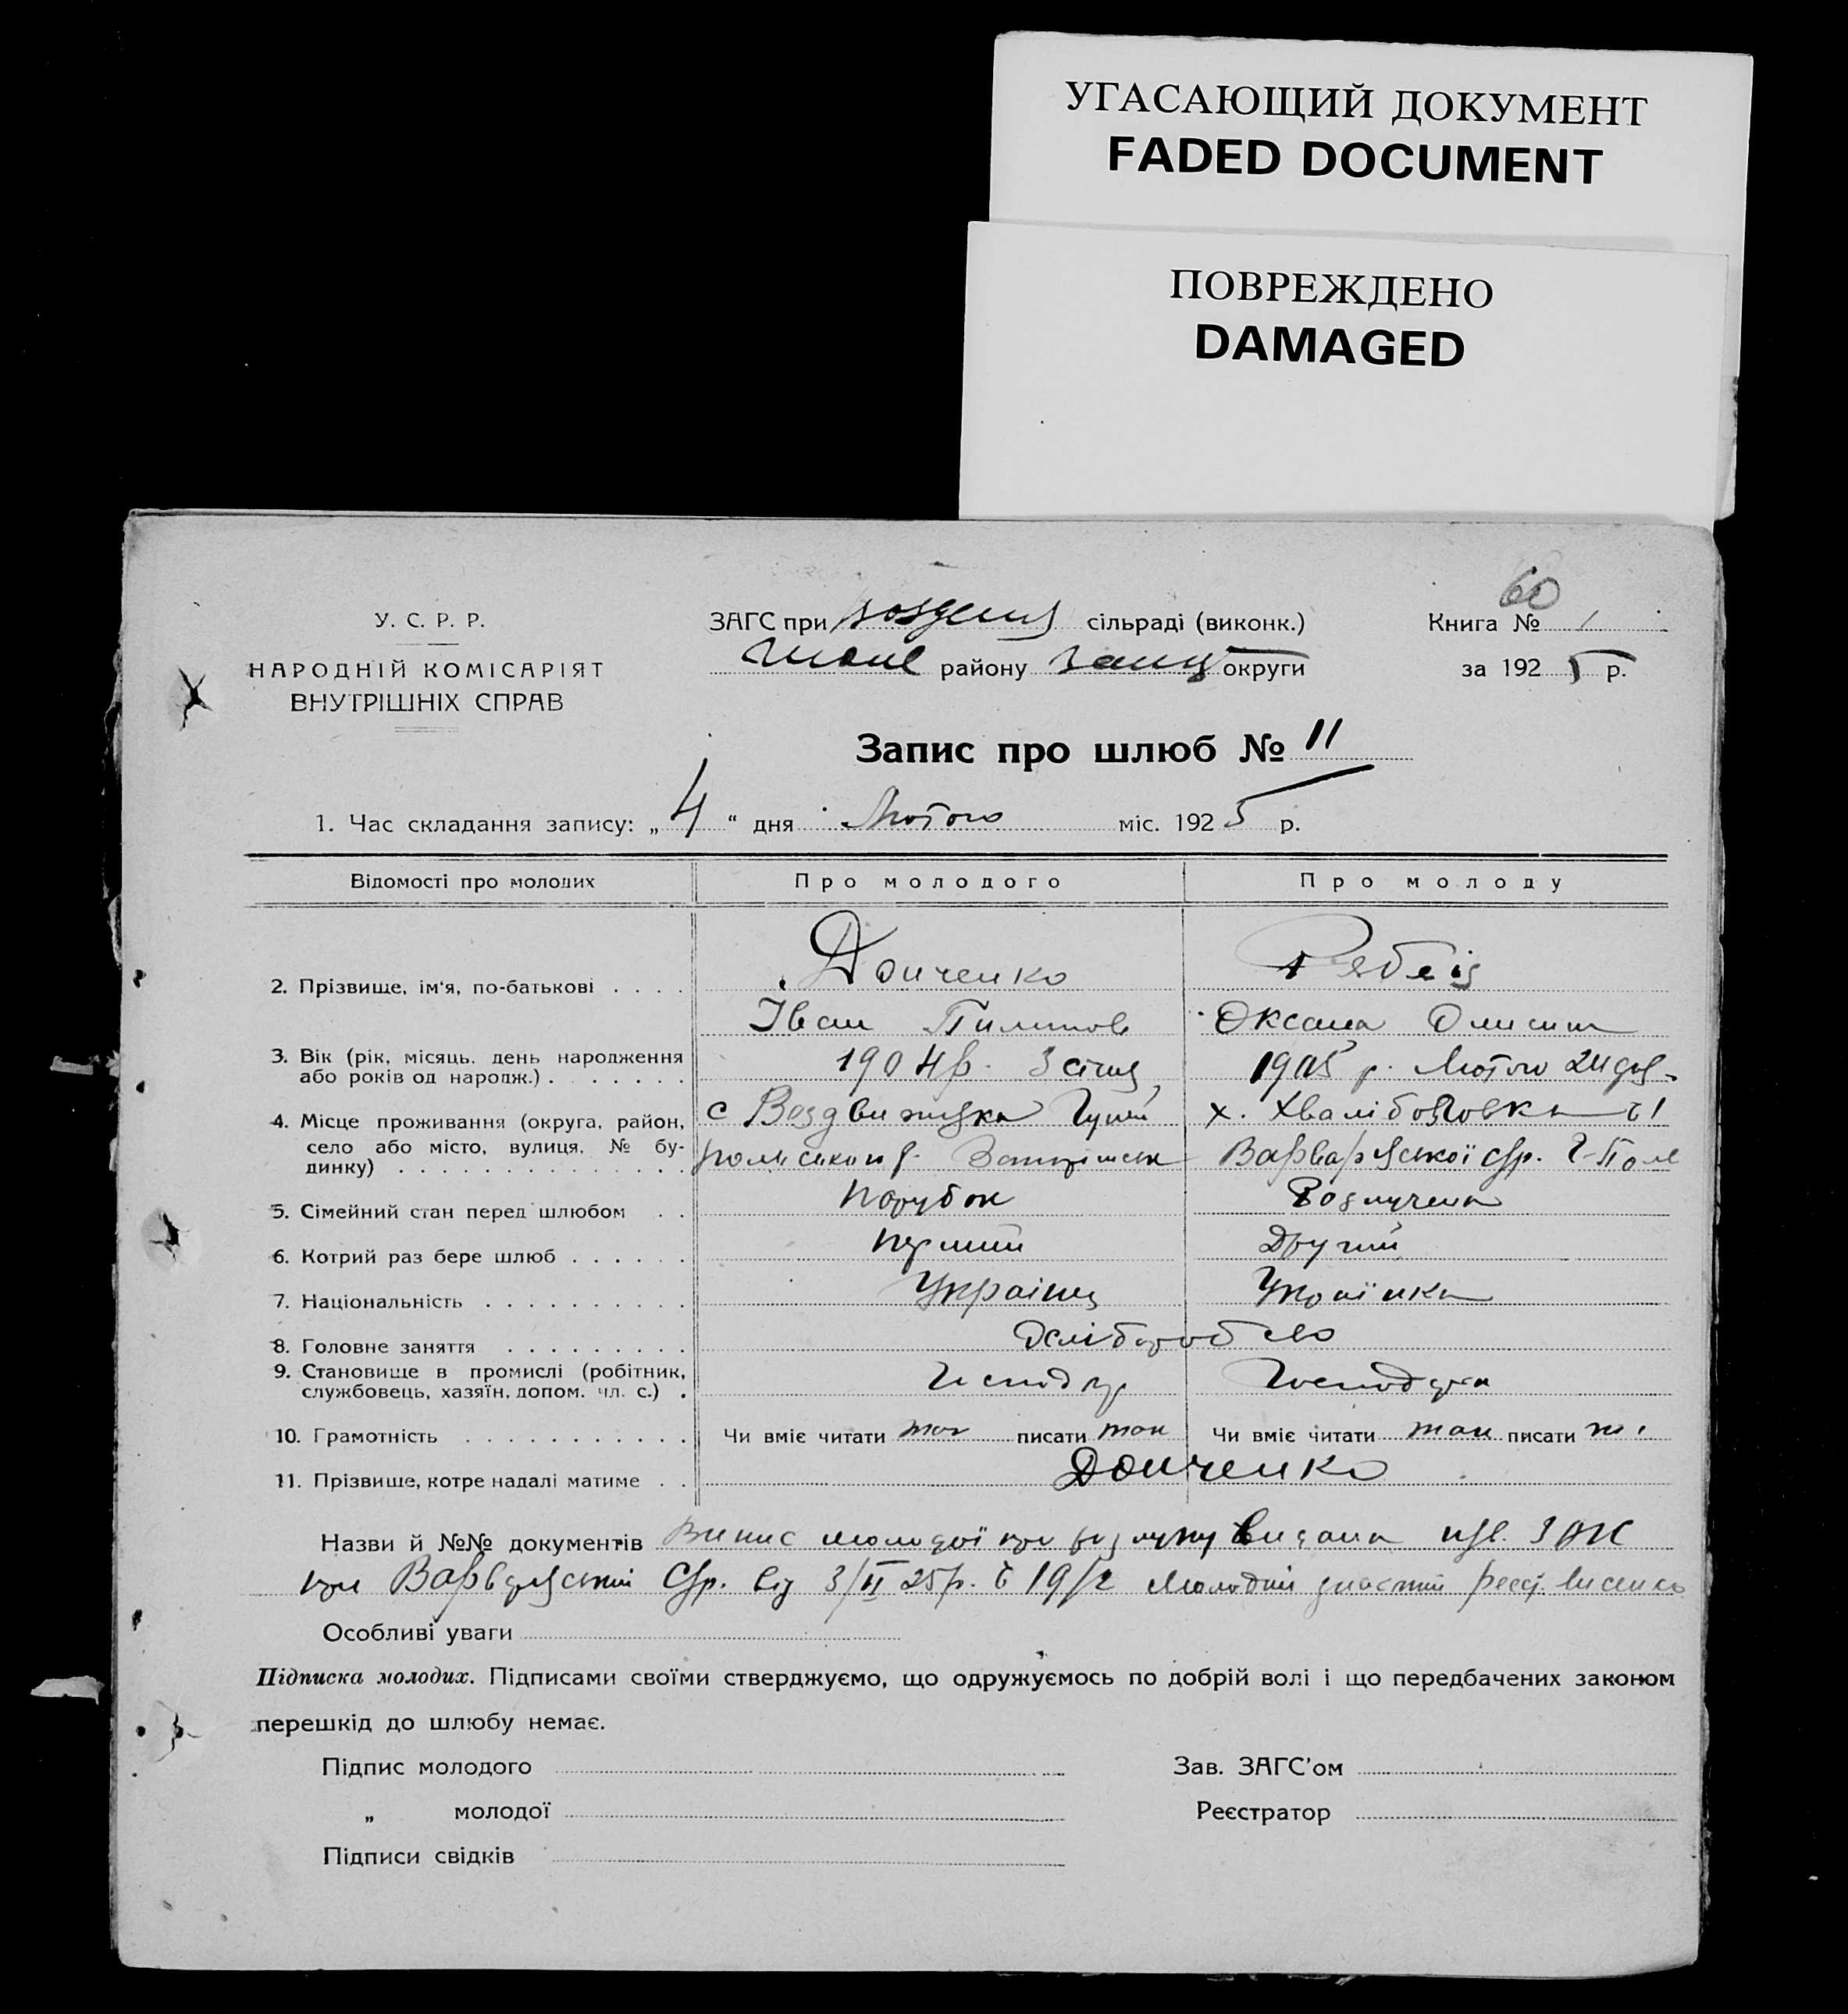 УГАСАЮЩИЙ ДОКУМЕНТ
FADED DOCUMENT
ПОВРЕЖДЕНО
DAMAGED
60
У. С. Р. Р.
НАРОДНІЙ КОМІСАРІЯТ
ВНУТРІШНІХ СПРАВ
ЗАГС при сільраді (виконк.)
району округи
Книга № 1
за 1925 р.
Запис про шлюб № 11
1. Час складання запису: „4“ дня Лютого міс. 1925 р.
Відомості про молодих Про молодого Про молоду
2. Прізвище, ім'я, по-батькові . . . . Донченко
Іван Пилипов Оксана
3. Вік (рік, місяць. день народження
або років од народж.) . . . . . . . 1904 р. 3 січня 1905 р. Лютого 24
4. Місце проживання (округа, район,
село або місто, вулиця, № бу-
динку) . . . . . . . . . . . . . . с Воздвижівка Гуляй х.
Варварівської с/р. Г-Поле
5. Сімейний стан перед шлюбом . . Парубок Розлучена
6. Котрий раз бере шлюб . . . . . . перший Другий
7. Національність . . . . . . . . . . Українец Українка
8. Головне заняття . . . . . . . . . Хліборобство
9. Становище в промислі (робітник,
службовець, хазяїн, допом. чл. с.) . Господар Господарка
10. Грамотність . . . . . . . . . . . Чи вміє читати так писати так Чи вміє читати так писати
11. Прізвище, котре надалі матиме . . Донченко
Назви й №№ документів Випис молодої про розлуку видана ЗАГС
при Варварівській С/р. від 3/II 25 р. № 19/2 Молодий
Особливі уваги
Підписка молодих. Підписами своїми стверджуємо, що одружуємось по добрій волі і що передбачених законом
перешкід до шлюбу немає.
Підпис молодого Зав. ЗАГС'ом
„ молодої Реєстратор
Підписи свідків